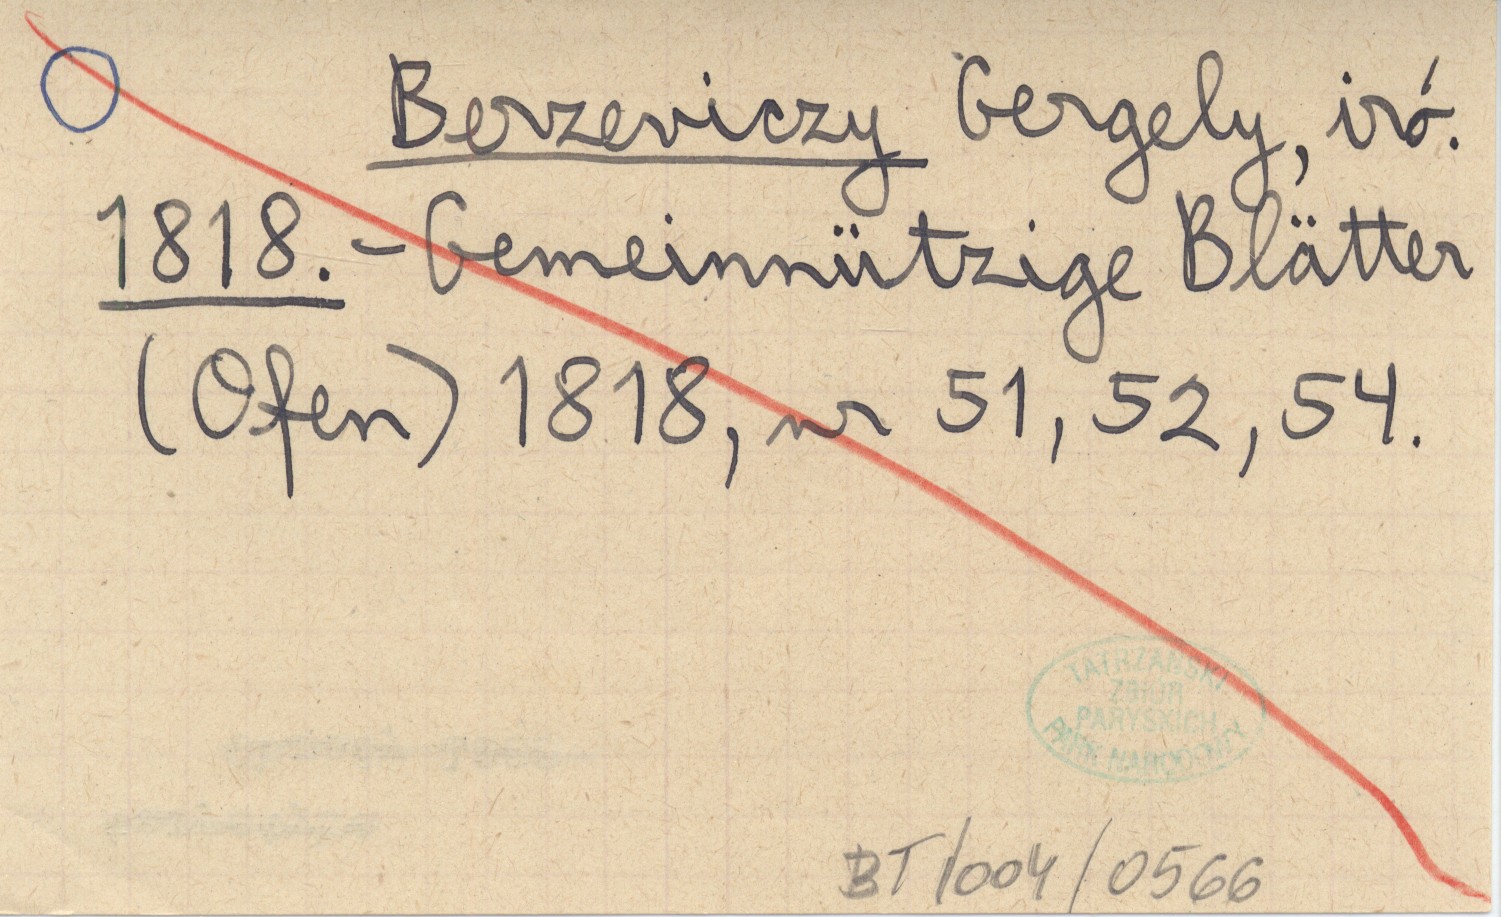 Berzeviczy Gergely, iró.
1818. - Gemeinnützige Blätter
(Ofen) 1818, nr 51, 52, 54.
TATRZAŃSKI
ZBIÓR
PARYSKICH
PARK NARODOWY
BT/004/0566